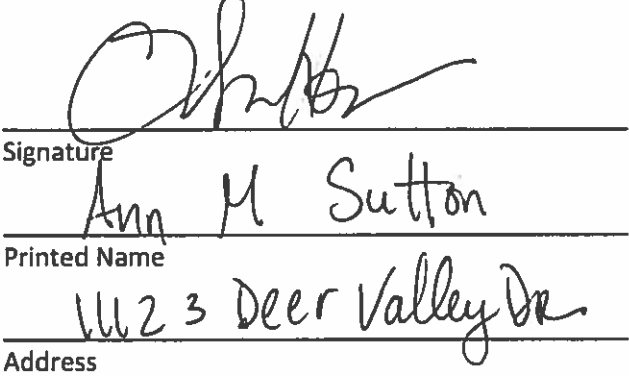 Signature
Ann M Sutton
Printed Name
11123 Deer Valley DR
Address